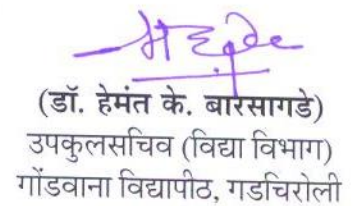 (डॉ. हेमंत के. बारसागडे)
उपकुलसचिव (विद्या विभाग)
गोंडवाना विद्यापीठ, गडचिरोली